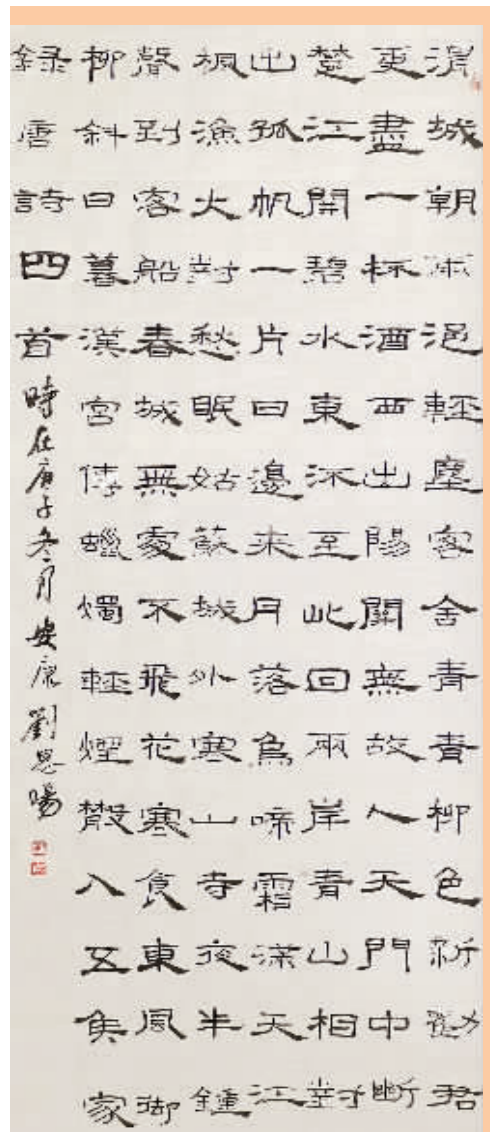 渭城朝雨浥輕塵客舍青青柳色新勸君
更盡一杯酒西出陽關無故人天門中斷
楚江開碧水東流至此回兩岸青山相對
出孤帆一片日邊來月落烏啼霜滿天江
楓漁火對愁眠姑蘇城外寒山寺夜半鐘
聲到客船春城無處不飛花寒食東風御
柳斜日暮漢宮傳蠟燭輕煙散入五侯家
錄唐詩四首時在庚子冬月安康劉思暘